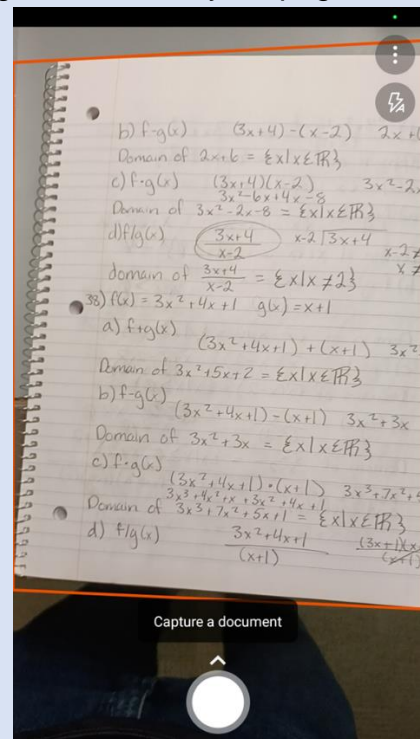 b) f-g(x) (3x+4)-(x-2) 2x+6
Domain of 2x+6 = {x|x∈ℝ}
c) f·g(x) (3x+4)(x-2) 3x²-2x
3x²-6x+4x-8
Domain of 3x²-2x-8 = {x|x∈ℝ}
d) f/g(x) 3x+4/x-2 x-2⟌3x+4 x-2≠
x≠
domain of 3x+4/x-2 = {x|x≠2}
38) f(x) = 3x²+4x+1 g(x)=x+1
a) f+g(x)
(3x²+4x+1)+(x+1) 3x²
Domain of 3x²+5x+2 = {x|x∈ℝ}
b) f-g(x)
(3x²+4x+1)-(x+1) 3x²+3x
Domain of 3x²+3x = {x|x∈ℝ}
c) f·g(x)
(3x²+4x+1)·(x+1) 3x³+7x²+
3x³+4x²+x+3x²+4x+1
Domain of 3x³+7x²+5x+1 = {x|x∈ℝ}
d) f/g(x) 3x²+4x+1/(x+1) (3x+1)(x/(x+1)
Capture a document